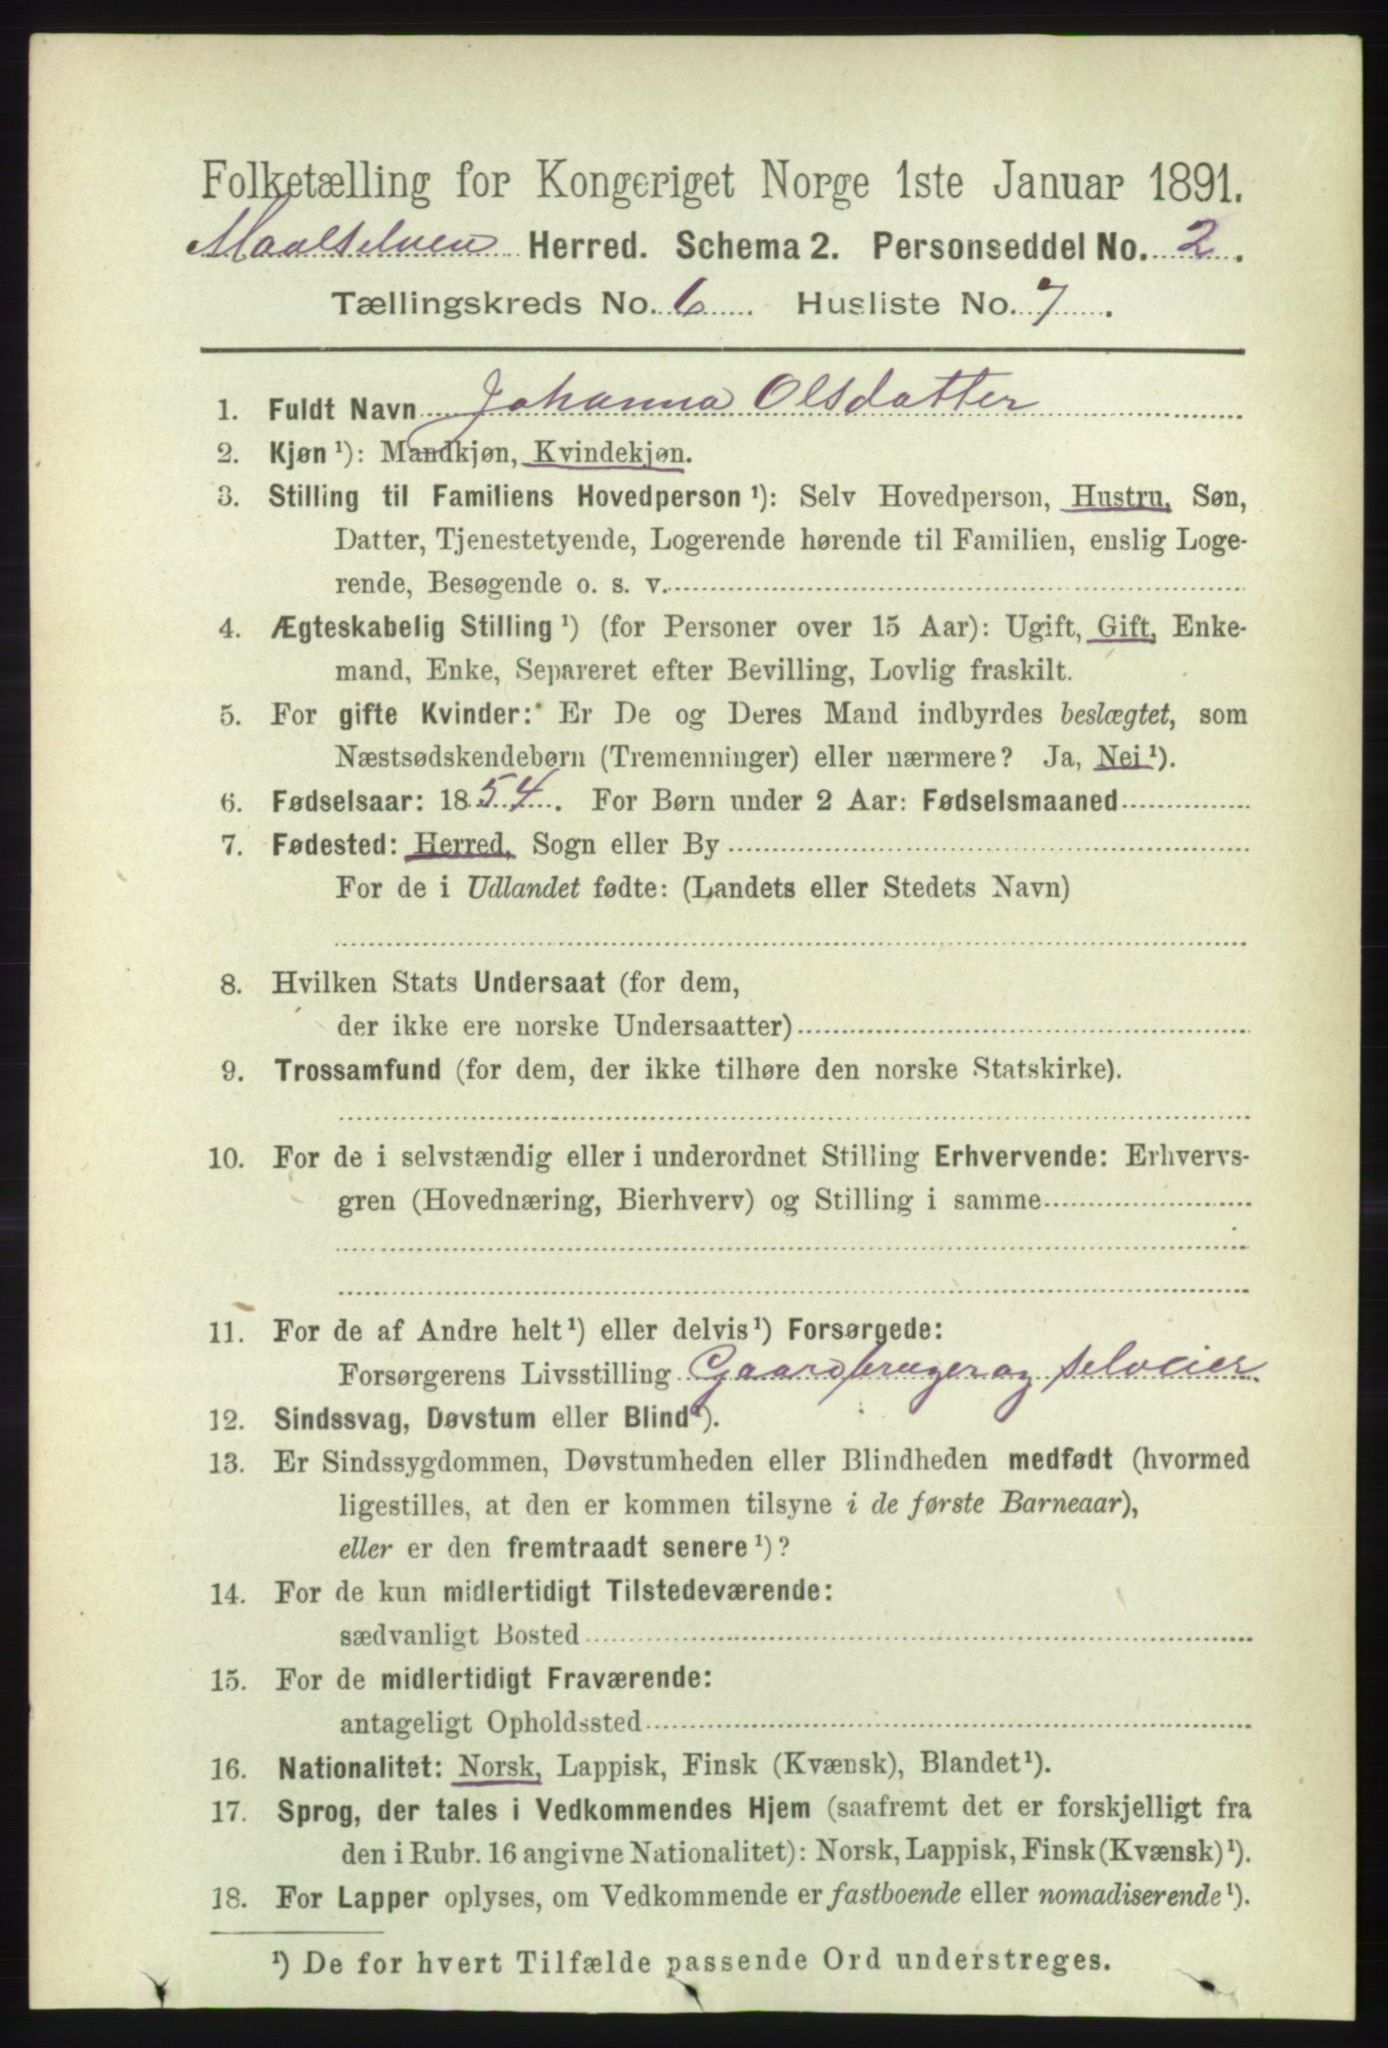 Folketælling for Kongeriget Norge 1ste Januar 1891.
Maalselven Herred. Schema 2. Personseddel No. 2.
Tællingskreds No. 6. Husliste No. 7.
1. Fuldt Navn Johanna Olsdatter
2. Kjøn ¹): Mandkjøn, Kvindekjøn.
3. Stilling til Familiens Hovedperson ¹): Selv Hovedperson, Hustru, Søn,
Datter, Tjenestetyende, Logerende hørende til Familien, enslig Loge-
rende, Besøgende o. s. v.
4. Ægteskabelig Stilling ¹) (for Personer over 15 Aar): Ugift, Gift, Enke-
mand, Enke, Separeret efter Bevilling, Lovlig fraskilt.
5. For gifte Kvinder: Er De og Deres Mand indbyrdes beslægtet, som
Næstsødskendebørn (Tremenninger) eller nærmere? Ja, Nei ¹).
6. Fødselsaar: 1854. For Børn under 2 Aar: Fødselsmaaned
7. Fødested: Herred, Sogn eller By
For de i Udlandet fødte: (Landets eller Stedets Navn)
8. Hvilken Stats Undersaat (for dem,
der ikke ere norske Undersaatter)
9. Trossamfund (for dem, der ikke tilhøre den norske Statskirke).
10. For de i selvstændig eller i underordnet Stilling Erhvervende: Erhvervs-
gren (Hovednæring, Bierhverv) og Stilling i samme
11. For de af Andre helt ¹) eller delvis ¹) Forsørgede:
Forsørgerens Livsstilling Gaardbruger og selveier
12. Sindssvag, Døvstum eller Blind ¹).
13. Er Sindssygdommen, Døvstumheden eller Blindheden medfødt (hvormed
ligestilles, at den er kommen tilsyne i de første Barneaar),
eller er den fremtraadt senere ¹)?
14. For de kun midlertidigt Tilstedeværende:
sædvanligt Bosted
15. For de midlertidigt Fraværende:
antageligt Opholdssted
16. Nationalitet: Norsk, Lappisk, Finsk (Kvænsk), Blandet ¹).
17. Sprog, der tales i Vedkommendes Hjem (saafremt det er forskjelligt fra
den i Rubr. 16 angivne Nationalitet): Norsk, Lappisk, Finsk (Kvænsk) ¹).
18. For Lapper oplyses, om Vedkommende er fastboende eller nomadiserende ¹).
¹) De for hvert Tilfælde passende Ord understreges.